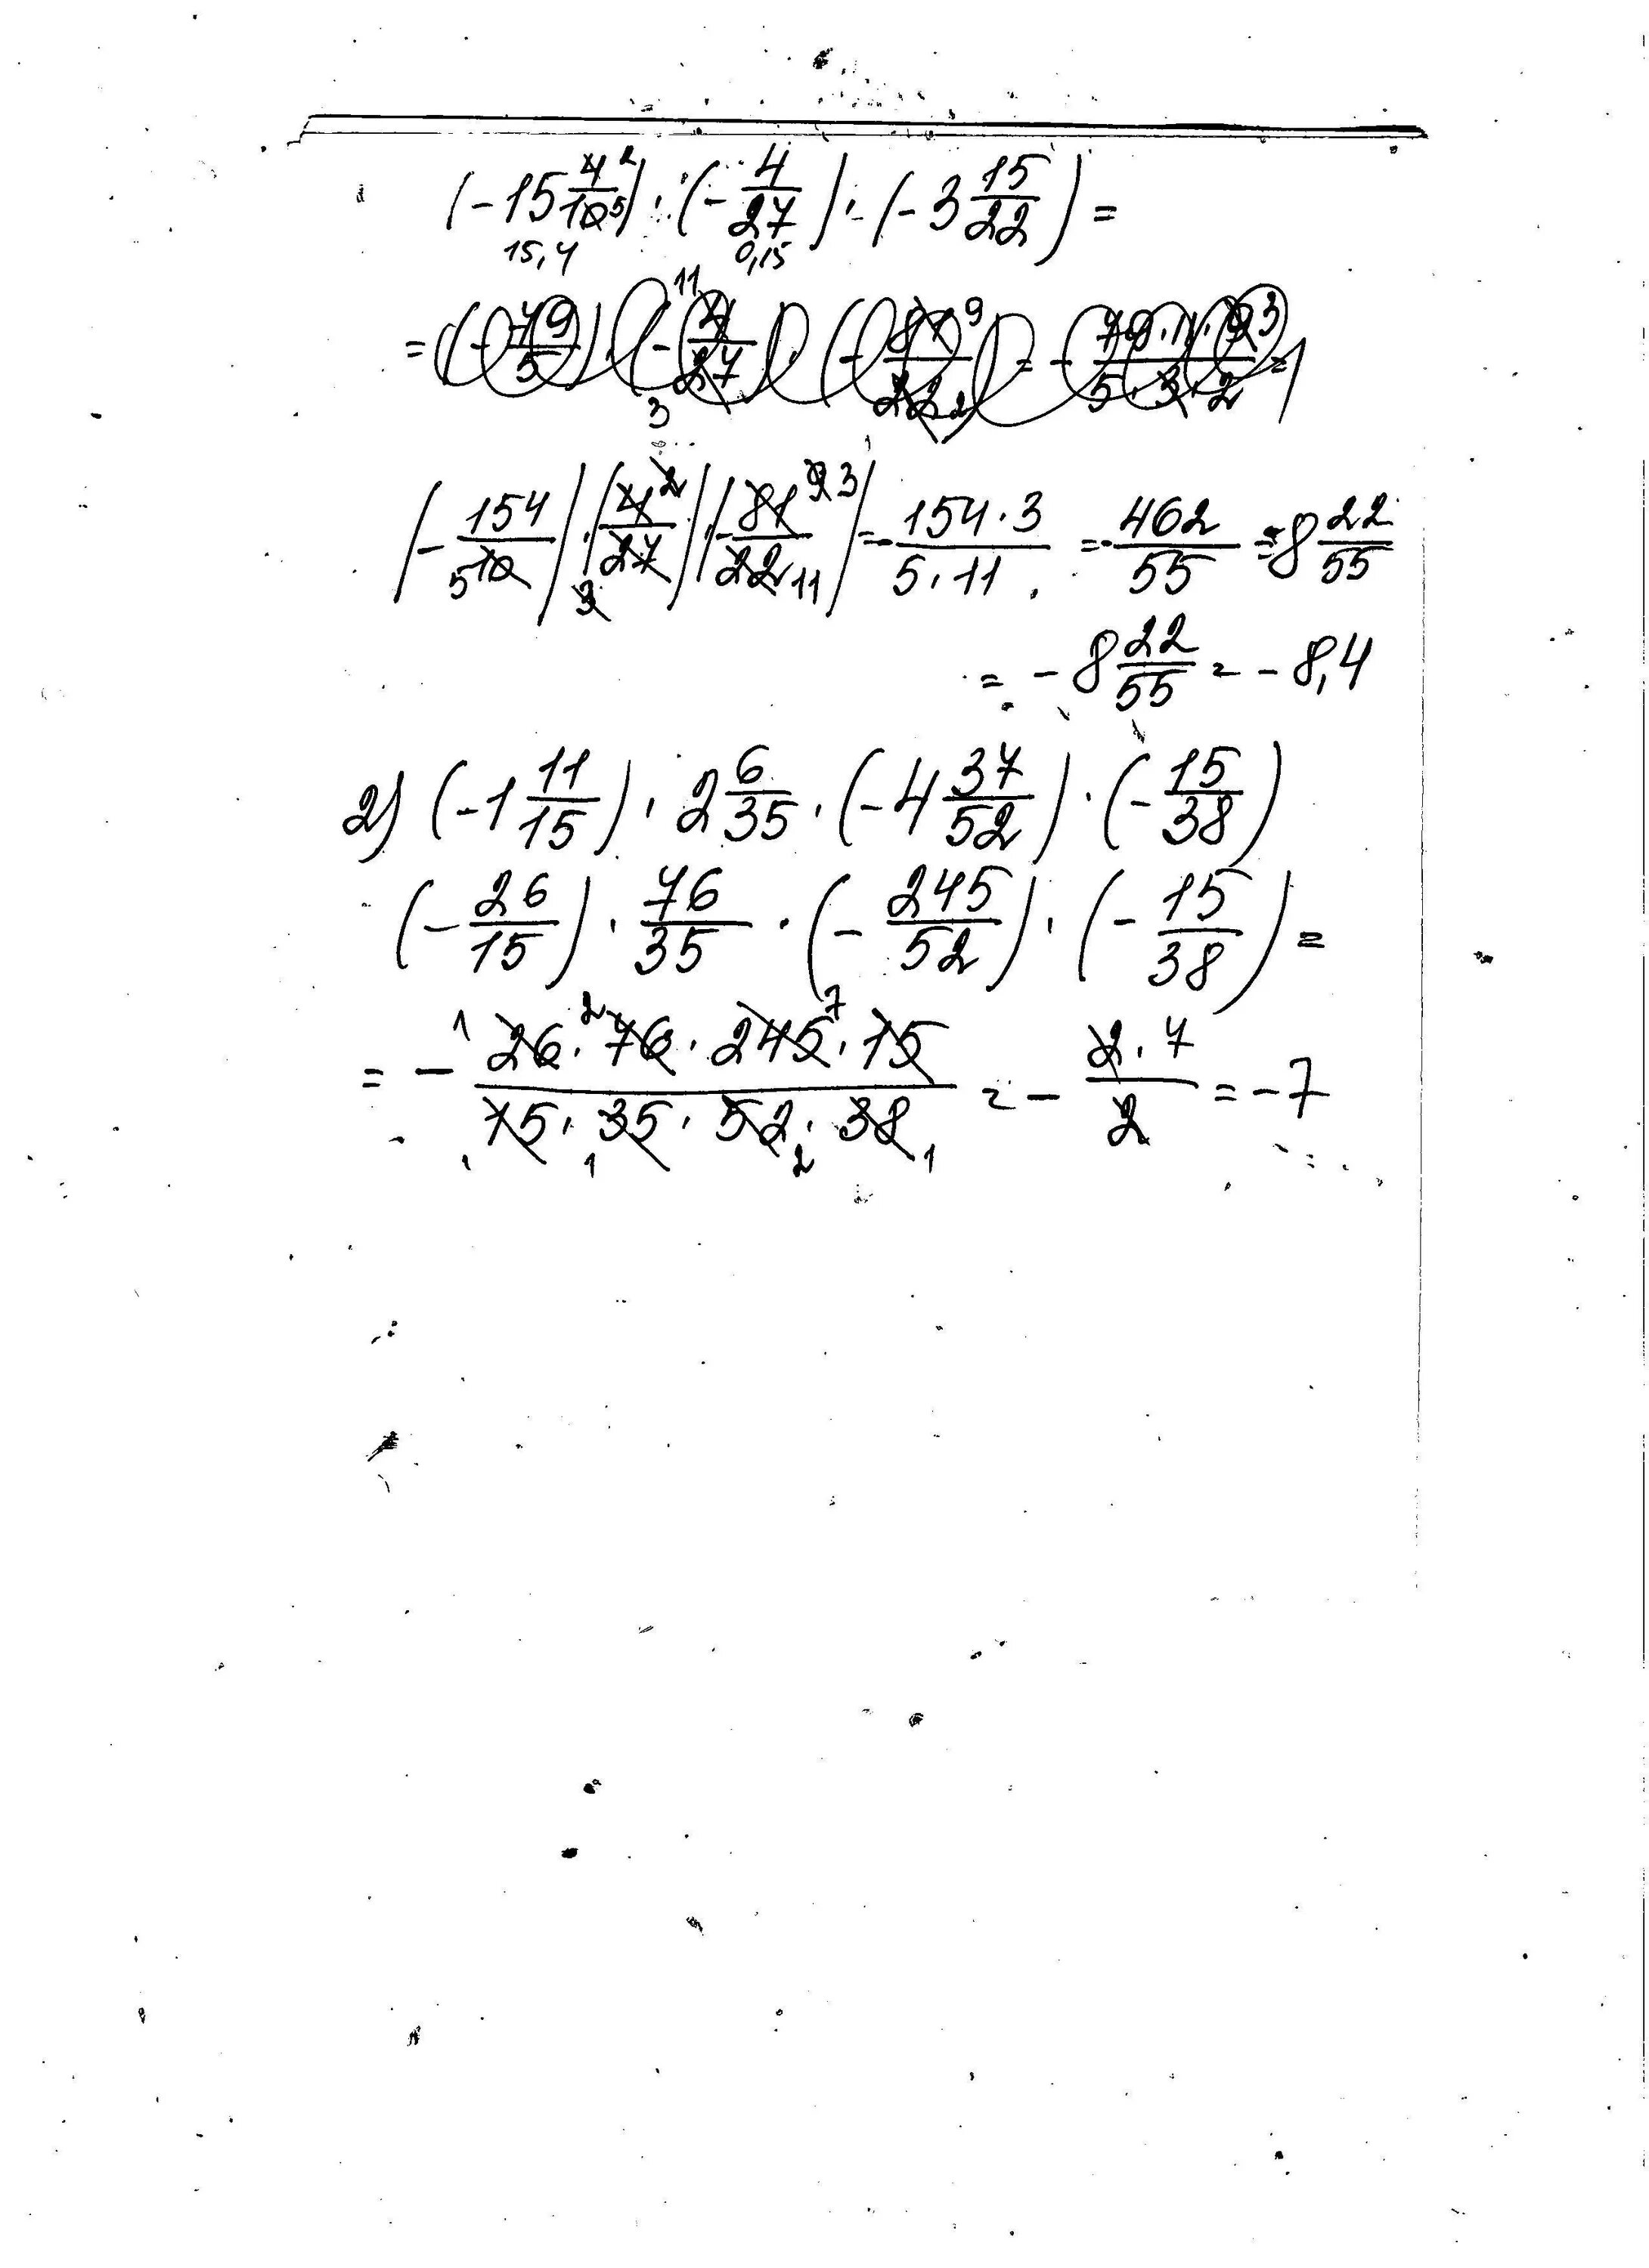 (-15 4/10) · (-4/27) · (-3 15/22) =
15,4 0,15
(-154/10) · (4/27) · (-81/22) = -154·3/5·11 = -462/55 = -8 22/55
= -8 22/55 = -8,4
2) (-1 11/15) · 2 6/35 · (-4 37/52) · (-15/38)
(-26/15) · 76/35 · (-245/52) · (-15/38) =
= - 26·76·245·15/15·35·52·38 = - 2·7/2 = -7